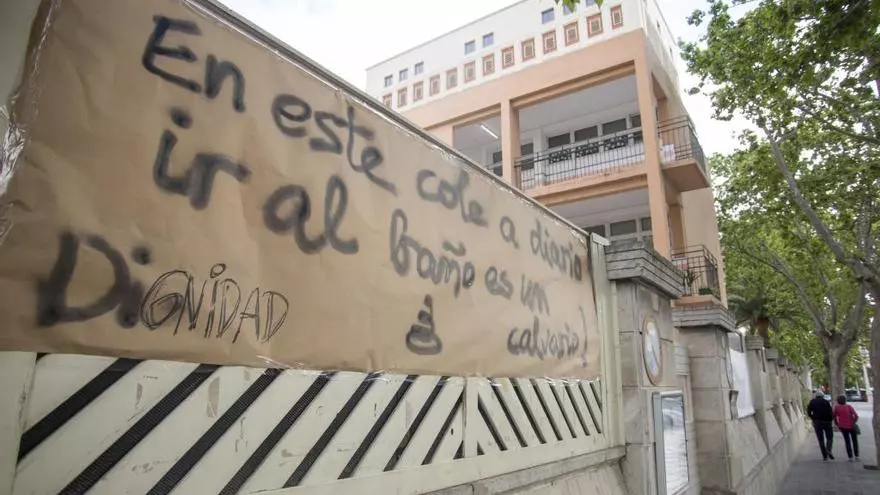 En este cole a diario
ir al baño es un
Dignidad calvario!